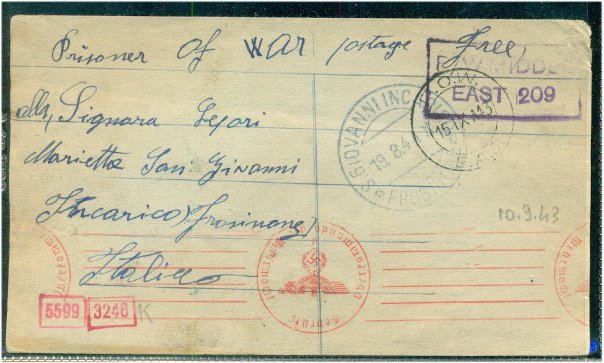 Prisoner Of War postage free
P.O.W. MIDDLE
EAST 209
P.O.W.
15 IX 43
S. GIOVANNI INC
19.8.4
FROSIN
alla Signora Lepori
Marietta San Giovanni
Incarico (Frosinone)
Italia
10.9.43
Oberkommando
Geprüft
5599 3246 K